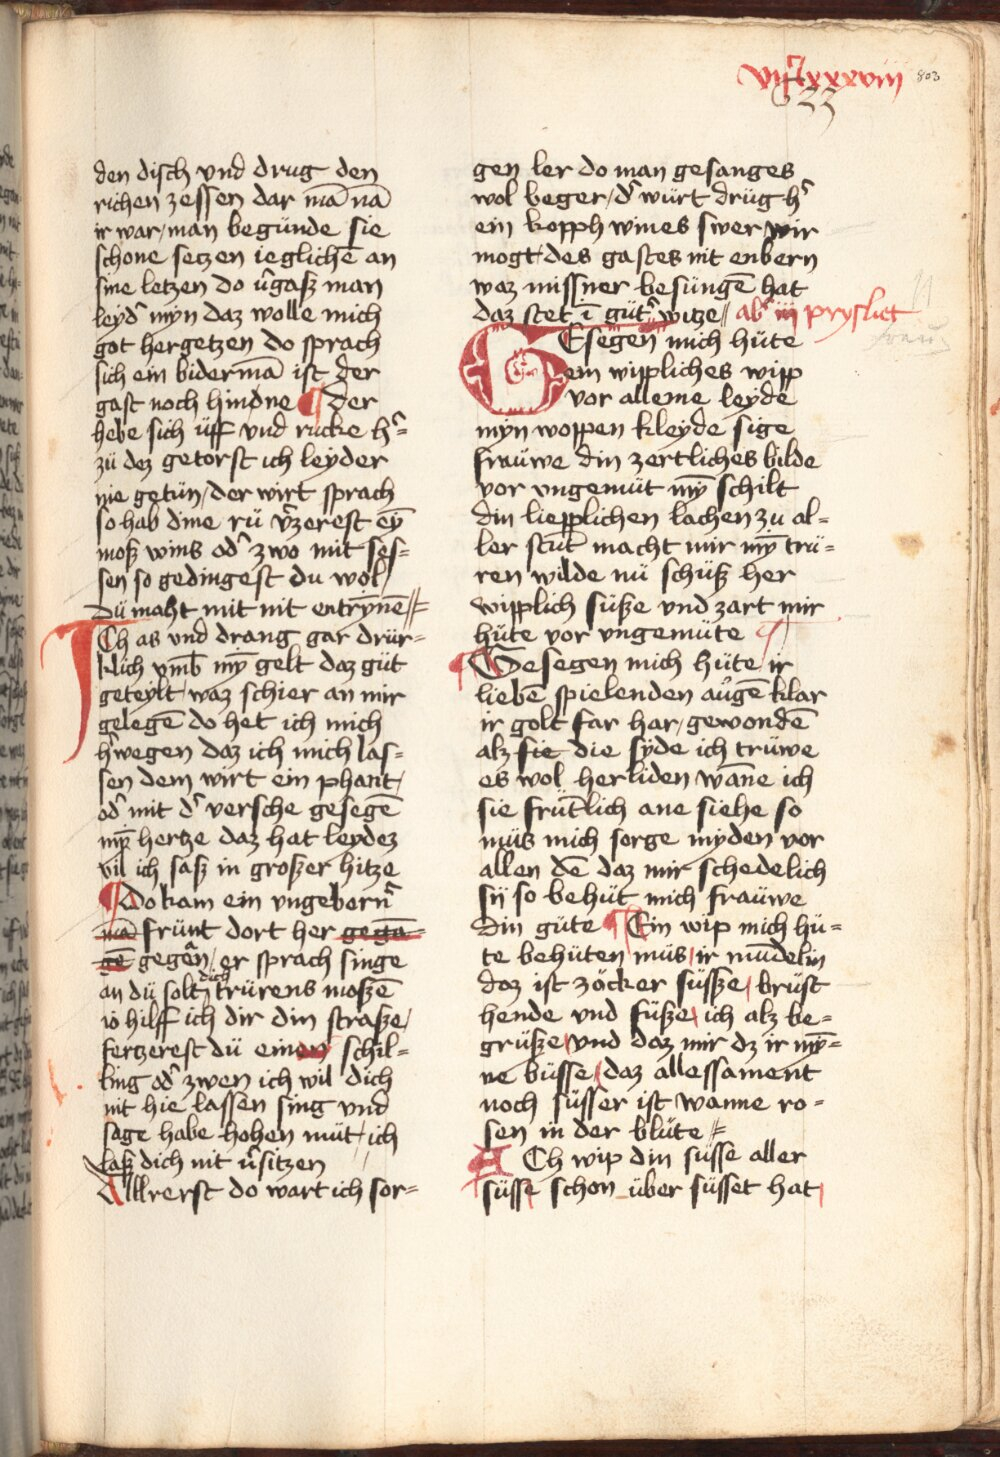 803
833
den disch vnd drug den
richen zessen dar mā nā
ir war / man begünde sie
schone setzen ieglichē an
sine letzen do v̾gasz man
leyd̾ myn daz wolle mich
got hergetzen do sprach
sich ein bidermā ist der
gast noch hindne ¶ der
hebe sich üff vnd rucke h̾=
zü dez getorst ich leyder
nie getün / der wirt sprach
so hab dine rü v̾zerest eȳ
mosz wins od̾ zwo mit ses=
sen so gedingest du wol
dü maht mit nit entrynnē //=
Ich as vnd drang gar drür=
klich vmb mȳ gelt daz güt
geteylt / waz schier an mir
gelegē do het ich mich
h̾wegen daz ich mich las=
sen dem wirt ein phant /
od̾ mit d̾ versche gesegē
mȳ hertze daz hat leydez
vil ich sasz in groszer hitze
¶ Do kam ein vngebern̾
mā frünt dort her gegā=
gē gegān / er sprach singe
an dü solt dich trürens moszē
io hilff ich dir din strasze /
fertzerest dü einen schil=
ling od̾ zwen ich wil dich
nit hie lassen sing vnd
sage habe hohen müt / ich
lasz dich nit v̾sitzen
Allrerst do wart ich sor=
gen ler do man gesanges
wol beger / d̾ würt drüg h̾
ein kopph wines swer wir
mogt des gastes nit enbern
waz missner besüngē hat
daz stet ī güt̾ witze // ab̾ iij pryſliet
Gesegen mich hüte
ein wippliches wipp
vor alleme leyde
myn woppen kleyde sige
frauwe din zertliches bilde
vor vngemüt mȳ schilt
din liepplichen lachen zu al=
ler stunt macht mir mȳ trü=
ren wilde nü schüsz her
wipplich süsze vnd zart mir
hüte vor vngemüte
¶ Gesegen mich hüte ir
liebē spielenden augē klar
ir golt far har / gewondē
alz sie die syde ich trüwe
es wol herliden wāne ich
sie früntlich ane siehe so
müs mich sorge myden vor
allen dē daz mir schedelich
sij so behüt mich frauwe
din güte ¶ Ein wip mich hü=
te behüten müs / ir mündelin
daz ist zöcker süsze / brüst
hende vnd füsze / ich alz be=
grüsze / vnd daz mir dz ir mȳ=
ne büsse / daz allessament
noch süsser ist wanne ro=
sen in der blüte //=
Ach wip din süsse aller
süsse schon über süsset hat /